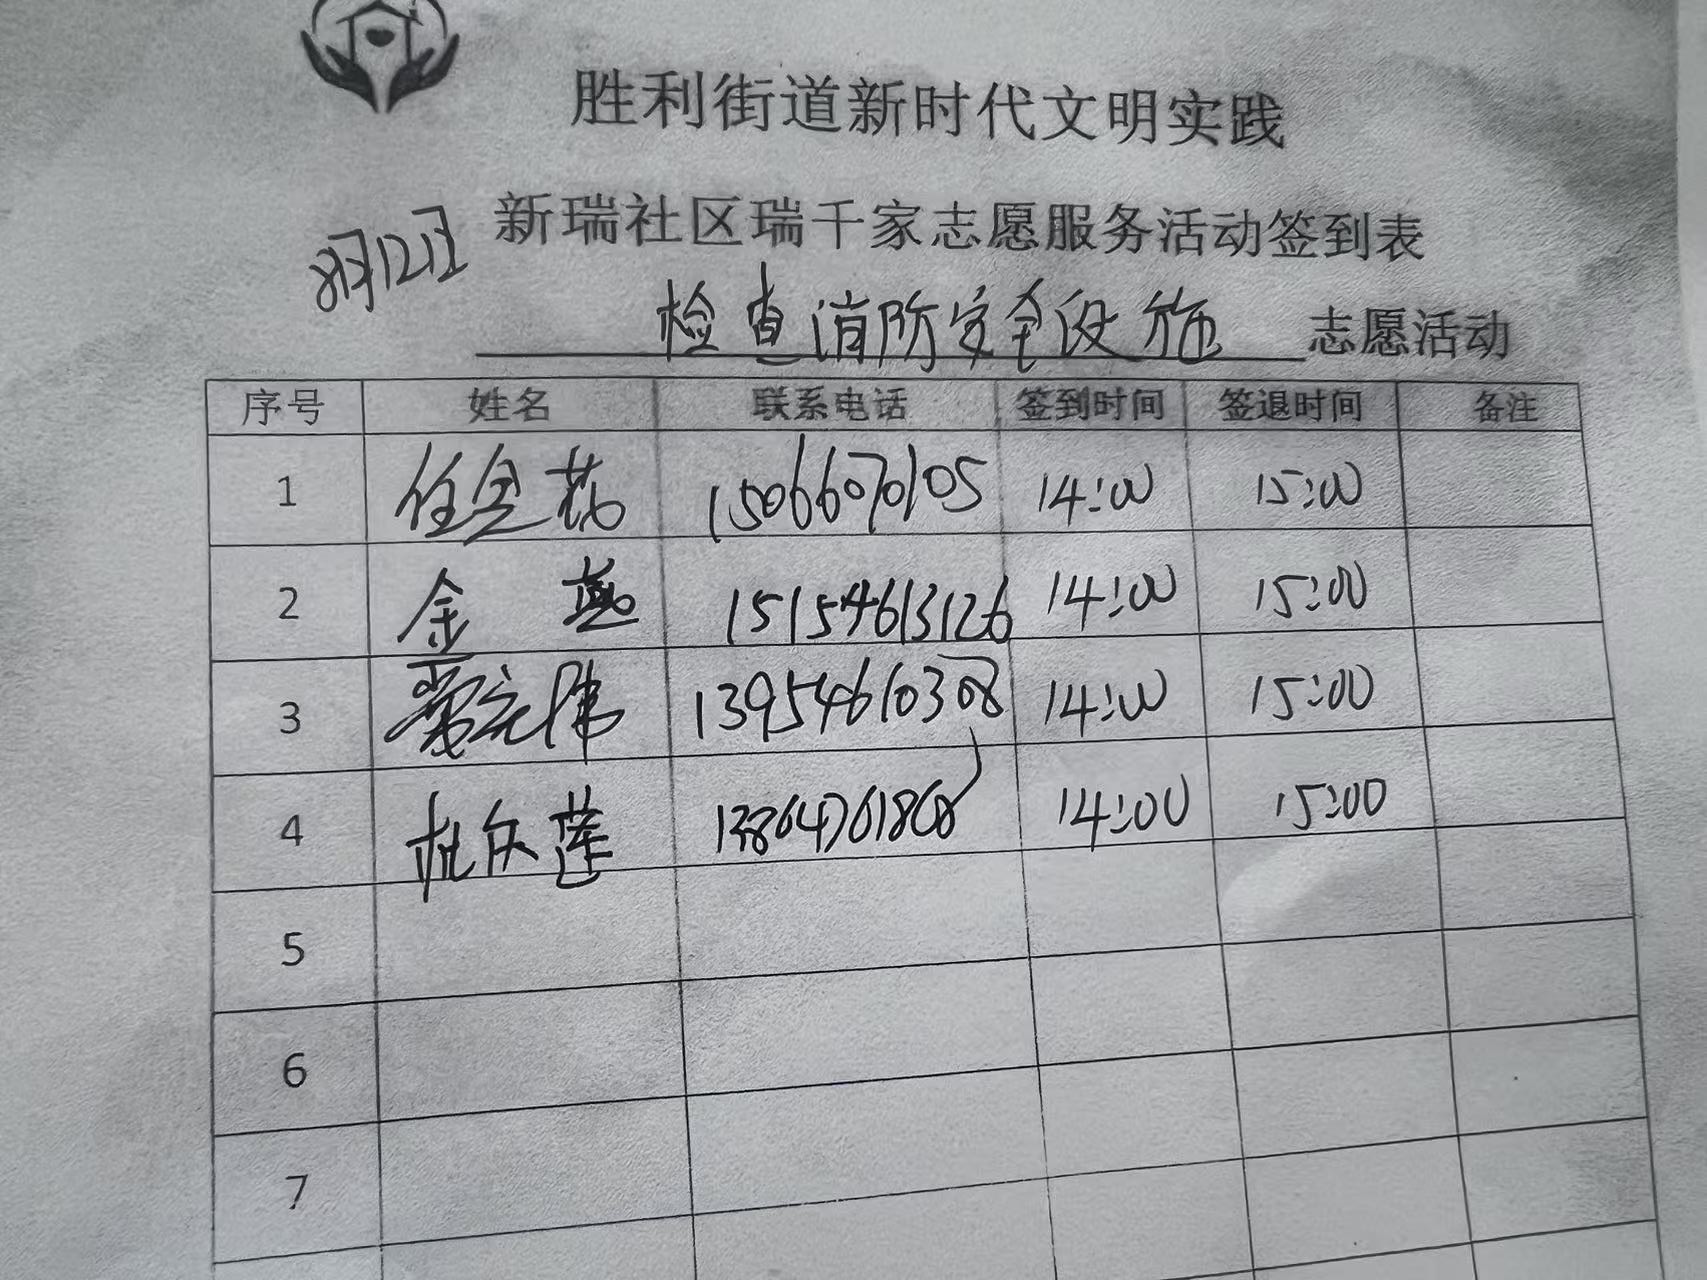 胜利街道新时代文明实践
新瑞社区瑞千家志愿服务活动签到表
8月12日
检查消防安全设施 志愿活动
序号 姓名 联系电话 签到时间 签退时间 备注
1 任 15066070105 14:00 15:00
2 金燕 15154613126 14:00 15:00
3 13954610308 14:00 15:00
4 莲 14:00 15:00
5
6
7